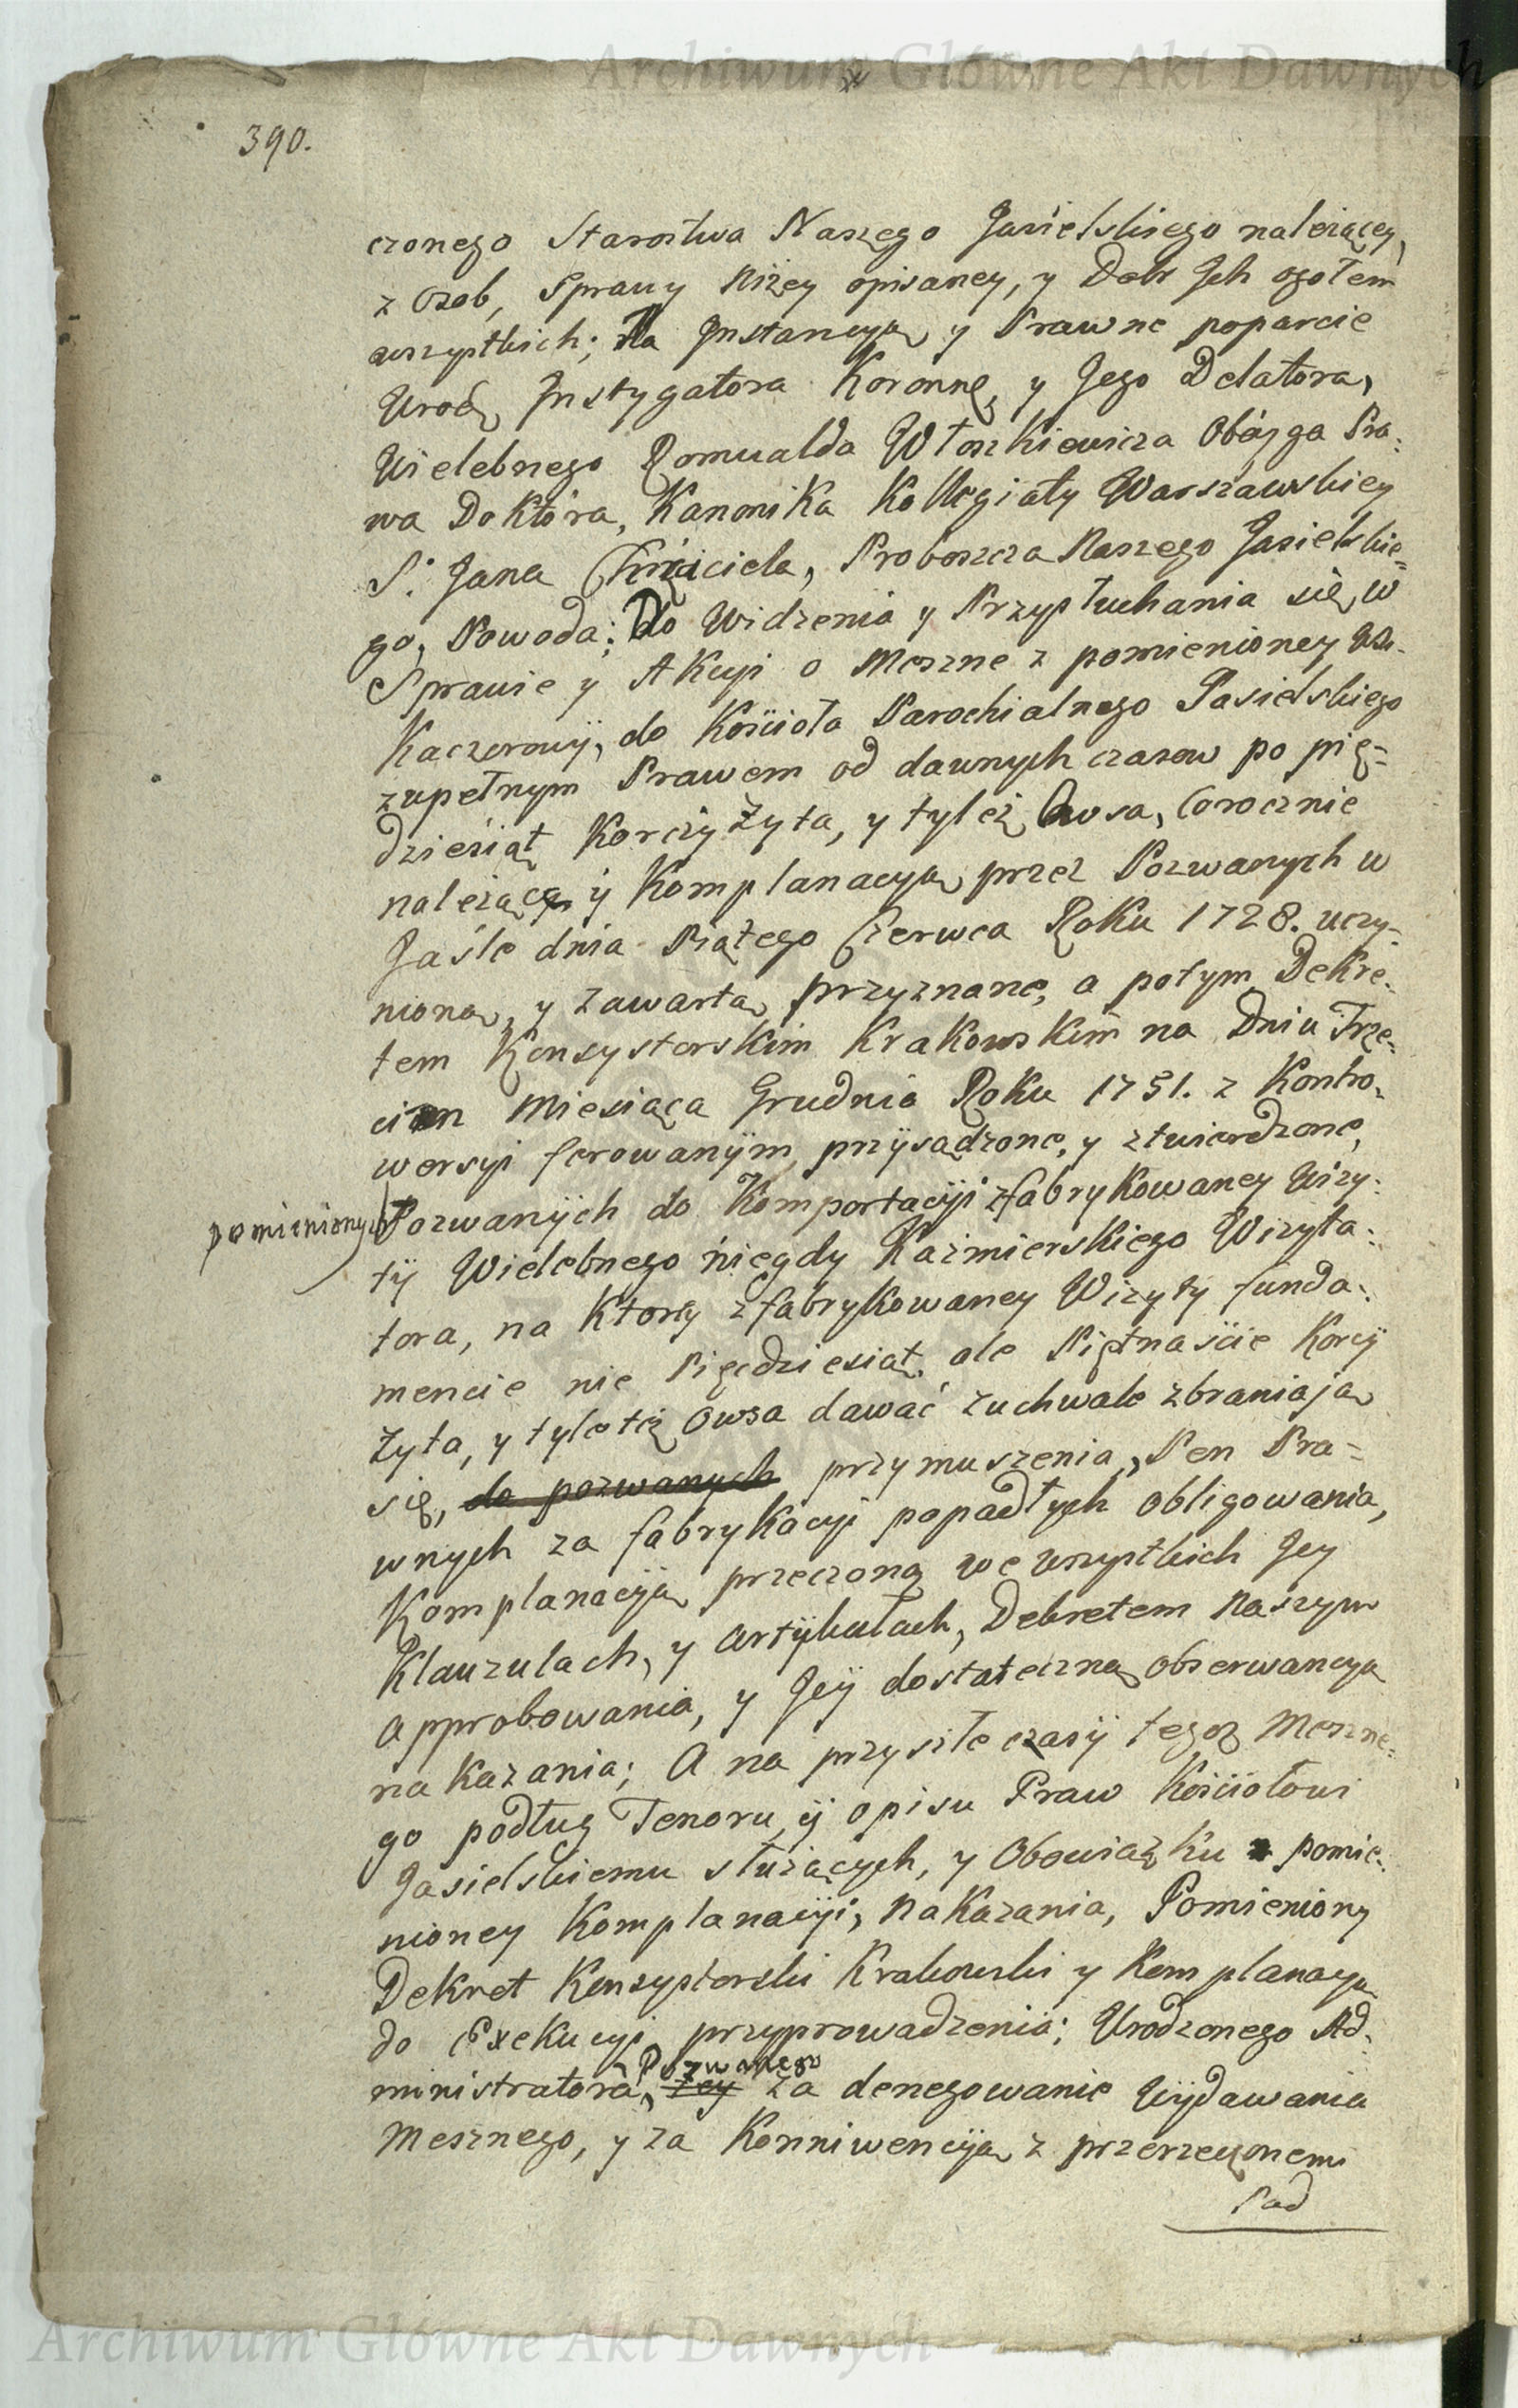 Archiwum Główne Akt Dawnych
390.
czonego Starostwa Naszego Jasielskiego należącey,
z Osob, Sprawy niżey opisaney, y Dobr Jch ogołem
wszystkich; Na Jnstancyą y Prawne poparcie
Urodz. Jnstygatora Koronne y Jego Delatora,
Wielebnego Romualda Włoszkiewicza Oboyga Pra:
wa Doktora, Kanonika Kollegiaty Warszawskiey
S. Jana Chrzciciela, Proboszcza Naszego Jasielskie=
go, Powoda; Do Widzenia y Przysłuchania się, w
Sprawie y Akcyi o Meszne z pomienioney Wsi
Kaczorowÿ, do Kościoła Parochialnego Jasielskiego
zupełnym Prawem od dawnych czasow po pię=
dziesiąt Korcy Żyta, y tyleż Owsa, Corocznie
należące ÿ Komplanacyą przez Pozwanych w
Jaśle dnia Piątego Czerwca Roku 1728. uczy=
nioną, y zawartą przyznane, a potym Dekre=
tem Konsystorskim Krakowskim na Dniu Trze=
cim Miesiąca Grudnia Roku 1751. z Kontro=
wersyi ferowanÿm, przÿsądzone, y ztwierdzone,
pomienionych
Pozwanÿch do Komportacÿi zfabrykowaney Wizy:
tÿ Wielebnego niegdy Kaźmierskiego Wizyta:
tora, na ktorey zfabrykowaney Wizyty funda:
mencie nie Pięćdziesiąt, ale Piętnaście Korcÿ
Żyta, y tyleteż Owsa dawać zuchwale zbraniaią
się, do pozwanych przymuszenia, Pen Pra=
wnych za fabrykacyi popadłych obligowania,
Komplanacyą przeczoną we wszystkich Jey
Klauzulach, y artÿkułach, Dekretem Naszym
approbowania, y Jeÿ dostateczną obserwancyą
nakazania; A na przyszłe czasÿ tegoż Meszne=
go podług Tenoru, ÿ opisu Praw Kościołowi
Jasielskiemu służących, y Obowiązku pomie=
nioney Komplanacÿi, nakazania, Pomieniony
Dekret Konsystorski Krakowski y Komplanacyą
do Exekucyi przyprowadzenia; Urodzonego Ad=
Pozwanego
ministratora, tey za denegowanie Wÿdawania
Mesznego, y za Konniwencÿą z przerzeczonemi
Pod
Archiwum Główne Akt Dawnych